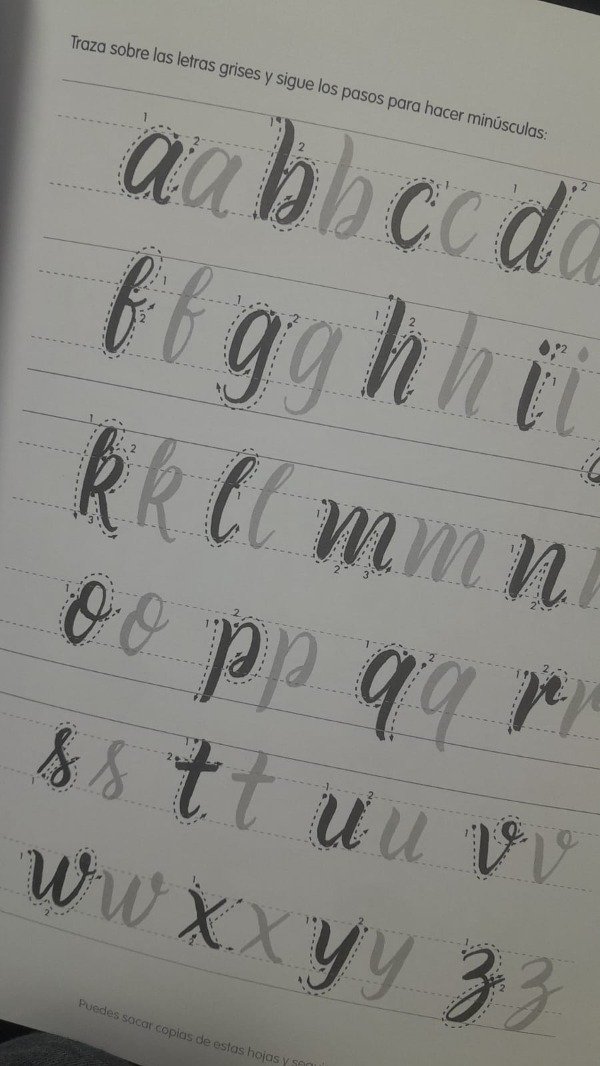 Traza sobre las letras grises y sigue los pasos para hacer minúsculas:
a a b b c c d d
f f g g h h i i
k k l l m m n
o o p p q q r r
s s t t u u v v
w w x x y y z z
Puedes sacar copias de estas hojas y